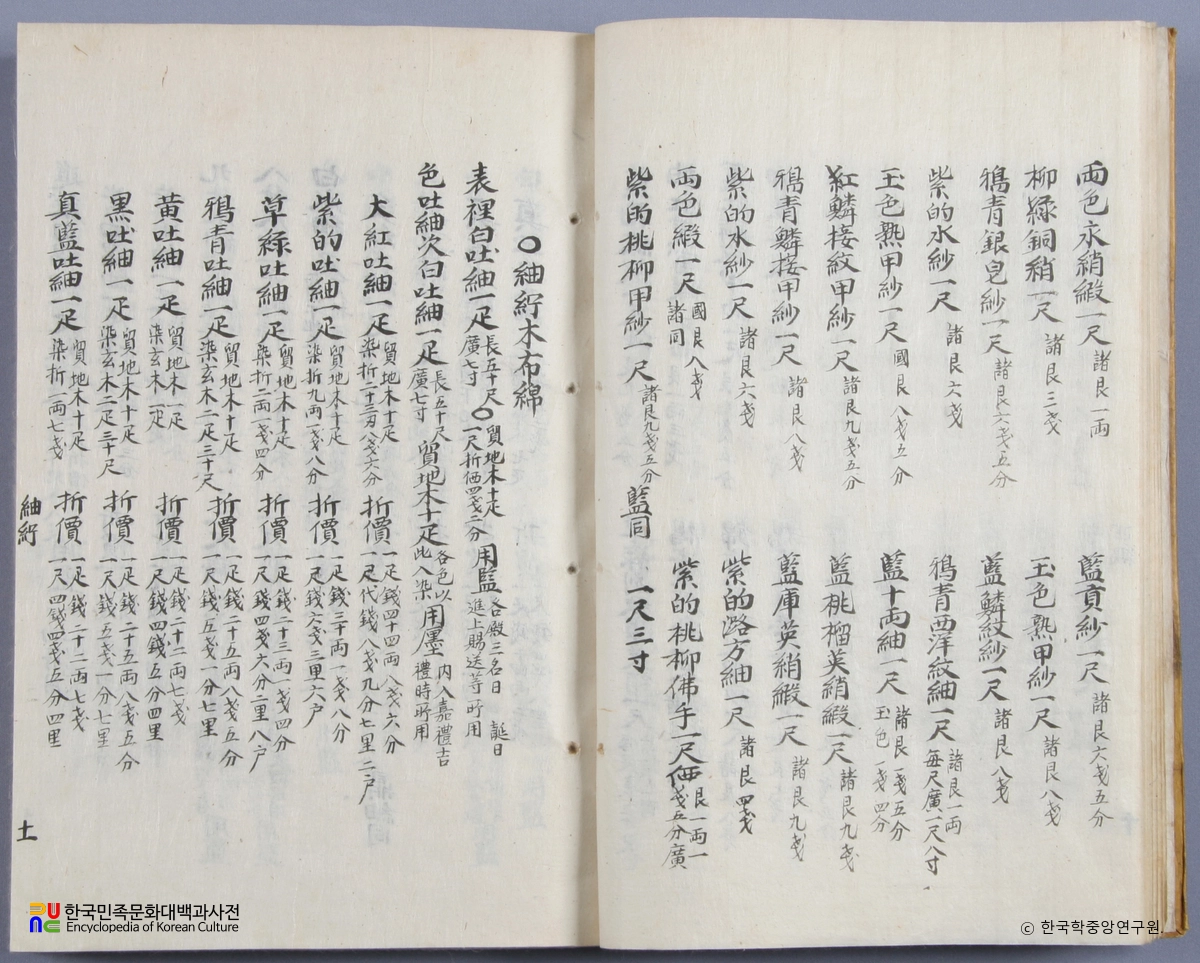 両色永綃緞一尺 諸艮一両 藍貢紗一尺 諸艮六戔五分
柳綠銅綃一尺 諸艮三戔 玉色熟甲紗一尺 諸艮八戔
鴉青銀皂紗一尺 諸艮六戔五分 藍鱗紋紗一尺 諸艮八戔
紫的水紗一尺 諸艮六戔 鴉青西洋紋紬一尺 諸艮一両 每尺廣一尺八寸
玉色熟甲紗一尺 國艮八戔五分 藍十両紬一尺 諸艮一戔五分 玉色一戔四分
紅鱗接紋甲紗一尺 諸艮九戔五分 藍桃榴英綃緞一尺 諸艮九戔
鴉青鱗接甲紗一尺 諸艮八戔 藍庫英綃緞一尺 諸艮九戔
紫的水紗一尺 諸艮六戔 紫的潞方紬一尺 諸艮四戔
両色緞一尺 國艮八戔 諸同 紫的桃柳佛手一尺価 艮一両一戔五分廣
紫的桃柳甲紗一尺 諸艮九戔五分 藍同 一尺三寸
○紬紵木布綿
表裡白吐紬一疋 長五十尺 廣七寸 ○貿地木十疋 一尺折価四戔二分 用監 各殿三名日 誕日 進上賜送等所用
色吐紬次白吐紬一疋 長五十尺 廣七寸 貿地木十疋 各色以此入染 用墨 内入嘉禮吉禮時所用
大紅吐紬一疋 貿地木十疋 染折二十三両八戔六分 折價 一疋錢四十四両八戔六分 一尺代錢八戔九分七里二戶
紫的吐紬一疋 貿地木十疋 染折九両一戔八分 折價 一疋錢三十両一戔八分 一尺錢六戔三里六戶
草綠吐紬一疋 貿地木十疋 染折二両一戔四分 折價 一疋錢二十三両一戔四分 一尺錢四戔六分二里八戶
鴉青吐紬一疋 貿地木十疋 染玄木二疋三十尺 折價 一疋錢二十五両八戔五分 一尺錢五戔一分七里
黃吐紬一疋 貿地木十疋 染玄木二疋 折價 一疋錢二十二両七戔 一尺錢四錢五分四里
黑吐紬一疋 貿地木十疋 染玄木二疋三十尺 折價 一疋錢二十五両八戔五分 一尺錢五戔一分七里
真藍吐紬一疋 貿地木十疋 染折一両七戔 折價 一疋錢二十二両七戔 一尺四錢四戔五分四里
紬紵 土
한국민족문화대백과사전
Encyclopedia of Korean Culture
ⓒ 한국학중앙연구원.